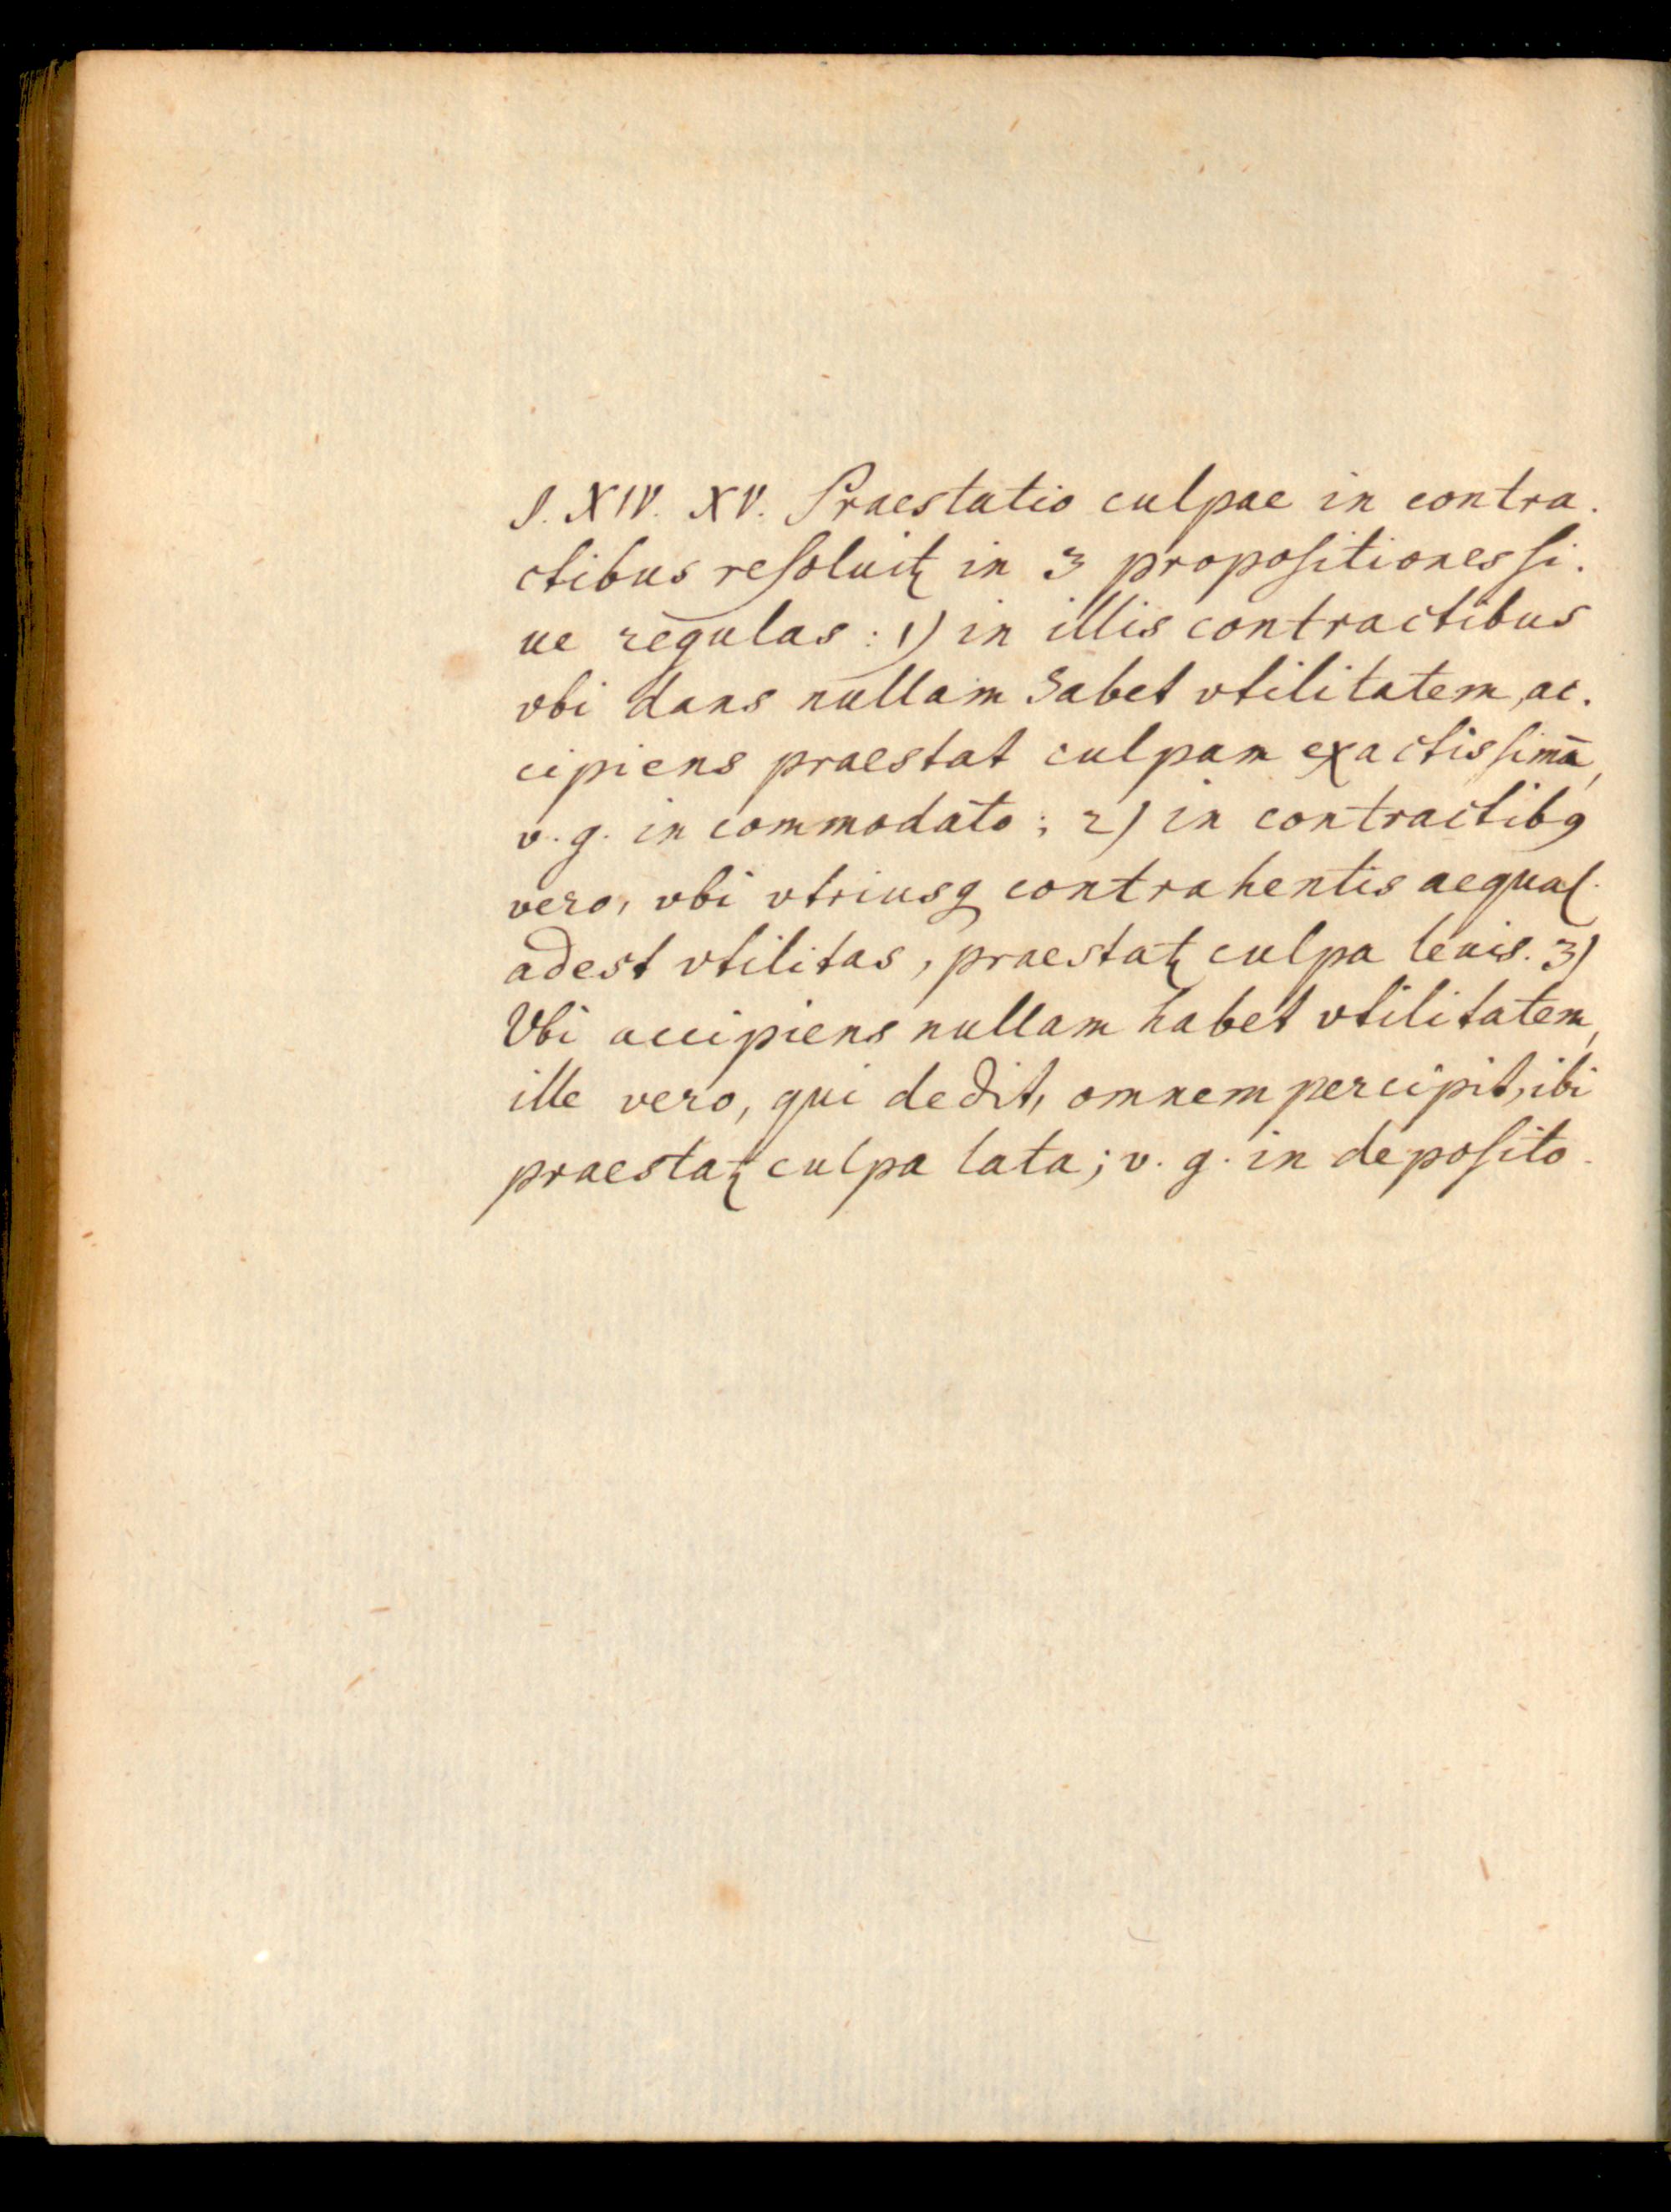 §. XIV. XV. Praestatio culpae in contra.
ctibus reſoluitꝶ in 3 propoſitiones ſi.
ue regulas: 1) in illis contractibus
vbi dans nullam habet vtilitatem, ac.
cipiens praestat culpam exactisſimā,
v. g. in commodato; 2) in contractibꝯ
vero, vbi vtriusq contrahentis aequal.
adest vtilitas, praestatꝶ culpa leuis. 3)
Vbi accipiens nullam habet vtilitatem,
ille vero, qui dedit, omnem percipit, ibi
praestatꝶ culpa lata; v. g. in depoſito.